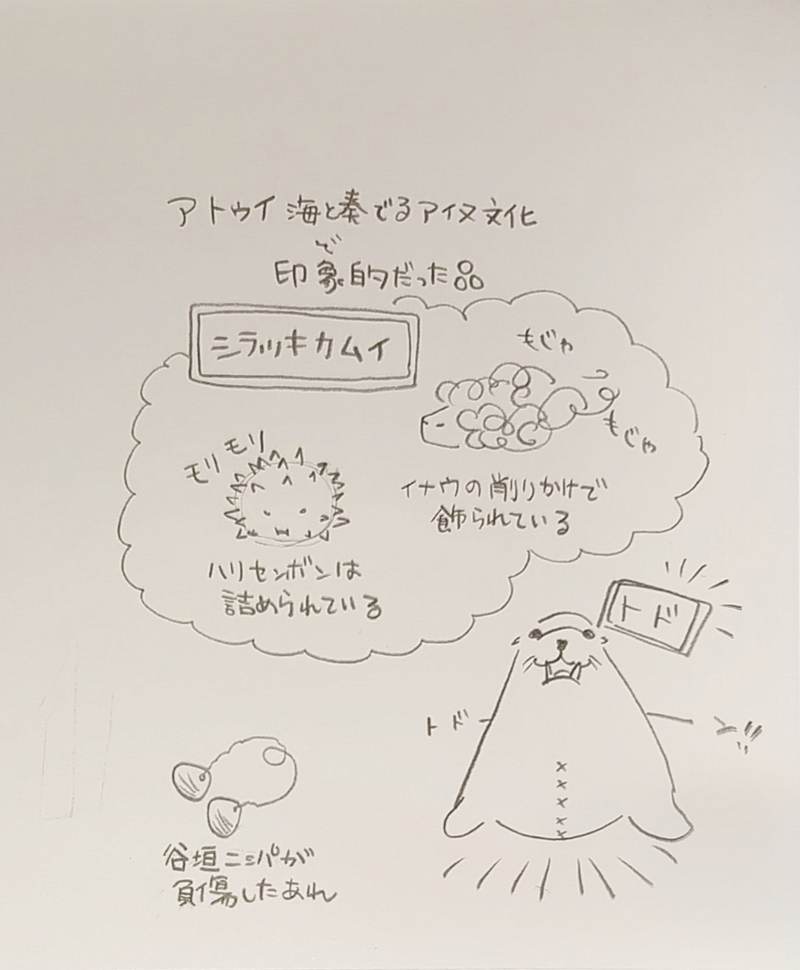 アトゥイ 海と奏でるアイヌ文化
で
印象的だった品
シラッキカムイ
もじゃ
もじゃ
モリモリ
イナウの削りかけで
飾られている
ハリセンボンは
詰められている
トド
トド ー ン
谷垣ニㇱパが
負傷したあれ